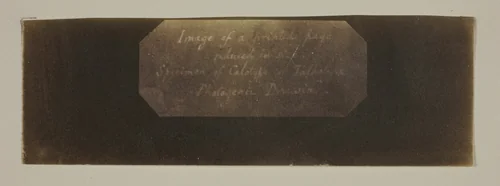 Image of a printed page
reduced in size
Specimen of Calotype or Talbotype
Photogenic Drawing